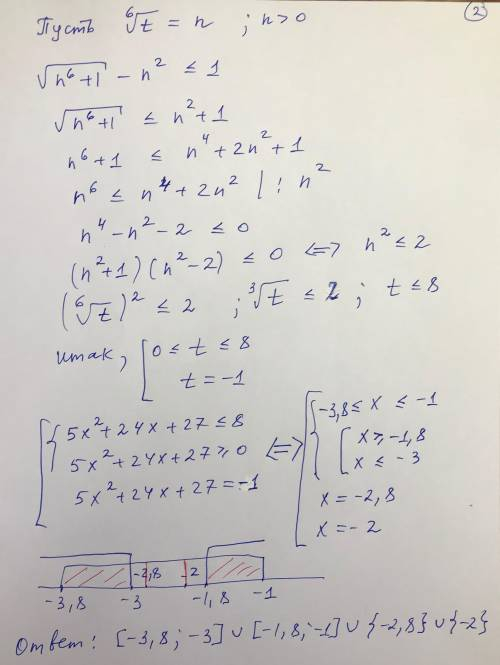 Пусть ⁶√t = n ; n > 0
2
√(n⁶+1) - n² ≤ 1
√(n⁶+1) ≤ n²+1
n⁶+1 ≤ n⁴+2n²+1
n⁶ ≤ n⁴+2n² | : n²
n⁴-n²-2 ≤ 0
(n²+1)(n²-2) ≤ 0 <=> n² ≤ 2
(⁶√t)² ≤ 2 ; ³√t ≤ 2 ; t ≤ 8
итак, [ 0 ≤ t ≤ 8
t = -1
[ { 5x²+24x+27 ≤ 8
5x²+24x+27 ≥ 0
5x²+24x+27 = -1
<=>
[ { -3,8 ≤ x ≤ -1
[ x ≥ -1,8
x ≤ -3
x = -2,8
x = -2
-2,8 -2
-3,8 -3 -1,8 -1
Ответ: [-3,8 ; -3] ∪ [-1,8 ; -1] ∪ {-2,8} ∪ {-2}